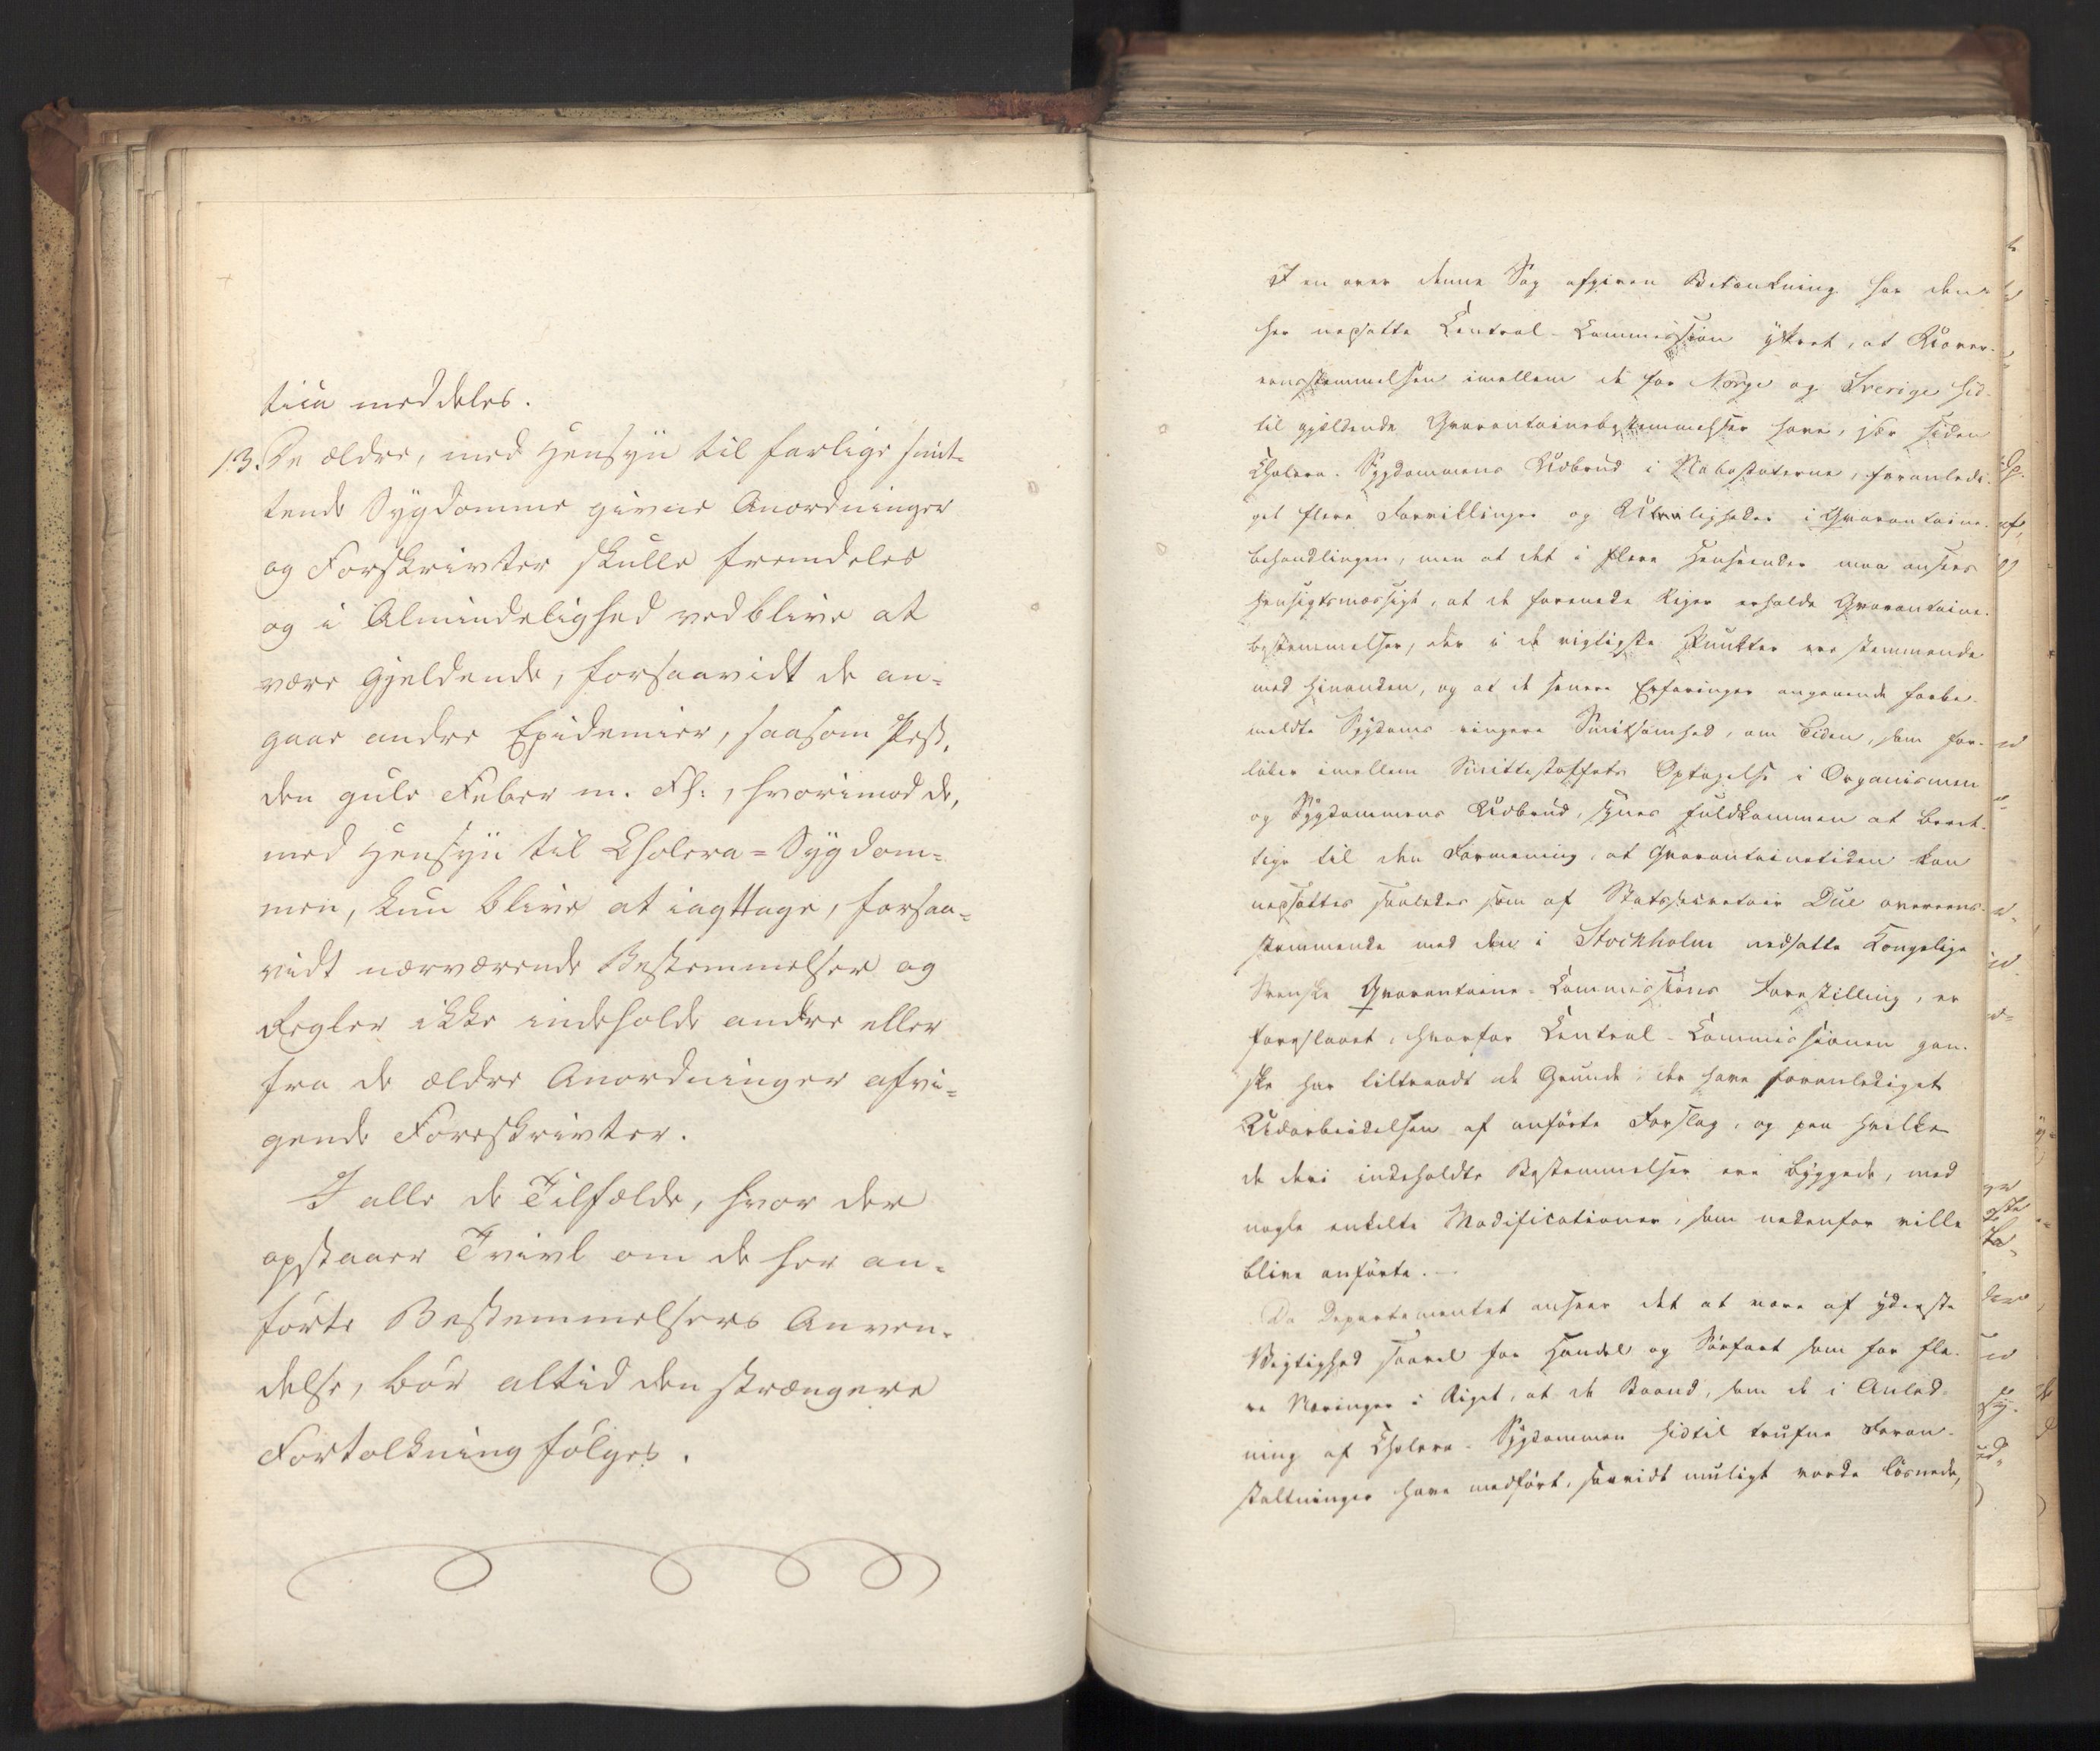 tica meddeles.
13. De ældre, med Hensyn til farlige smit-
tende Sygdomme givne Anordninger
og Forskrivter skulle fremdeles
og i Almindelighed vedblive at
være gjeldende, forsaavidt de an-
gaae andre Epidemier, saasom Pest,
den gule Feber m. Fl:, hvorimod de,
med Hensyn til Cholera-Sygdom-
men, kun blive at iagttage, forsaa-
vidt nærværende Bestemmelser og
Regler ikke indeholde andre eller
fra de ældre Anordninger afvi-
gende Foreskrivter.
I alle de Tilfælde, hvor der
opstaaer Tvivl om de her an-
førte Bestemmelsers Anven-
delse, bør altid den strængere
Fortolkning følges.
I en over denne Sag afgiven Betænkning har den
her nedsatte Central-Commission yttret, at Uover-
eensstemmelsen imellem de for Norge og Sverige hid-
til gjældende Qvarantainebestemmelser have, især siden
Cholera-Sygdommens Udbrud i Nabostaterne, foranledi-
get flere Forviklinger og Uvileligheder i Qvarantaine-
behandlingen, men at det i flere Henseender maa ansees
hensigtsmæssigt, at de forenede Riger erholde Qvarantaine-
bestemmelser, der i de vigtigste Punkter ere stemmende
med hinanden, og at de senere Erfaringer angaaende forbe-
meldte Sygdoms ringere Smitsomhed, om Tiden, som for-
løber imellem Smittestoffets Optagelse i Organismen
og Sygdommens Udbrud, synes fuldkommen at beret-
tige til den Formening, at Qvarantainetiden kan
nedsættes saaledes som af Statssecretair Due overeens-
stemmende med den i Stockholm nedsatte Kongelige
Svenske Qvarantaine-Commissions Forestilling, er
foreslaaet, hvorfor Central-Commissionen gan-
ske har tiltraadt de Grunde, der have foranlediget
Udarbeidelsen af anførte Forslag, og paa hvilke
de deri indeholdte Bestemmelser ere byggede, med
nogle enkelte Modificationer, som nedenfor ville
blive anførte.
Da Departementet anseer det at være af yderste
Vigtighed saavel for Handel og Søefart som for fle-
re Næringer i Riget, at de Baand, som de i Anled-
ning af Cholera-Sygdommen hidtil trufne Foran-
staltninger have medført, saavidt muligt vorde løsnede,